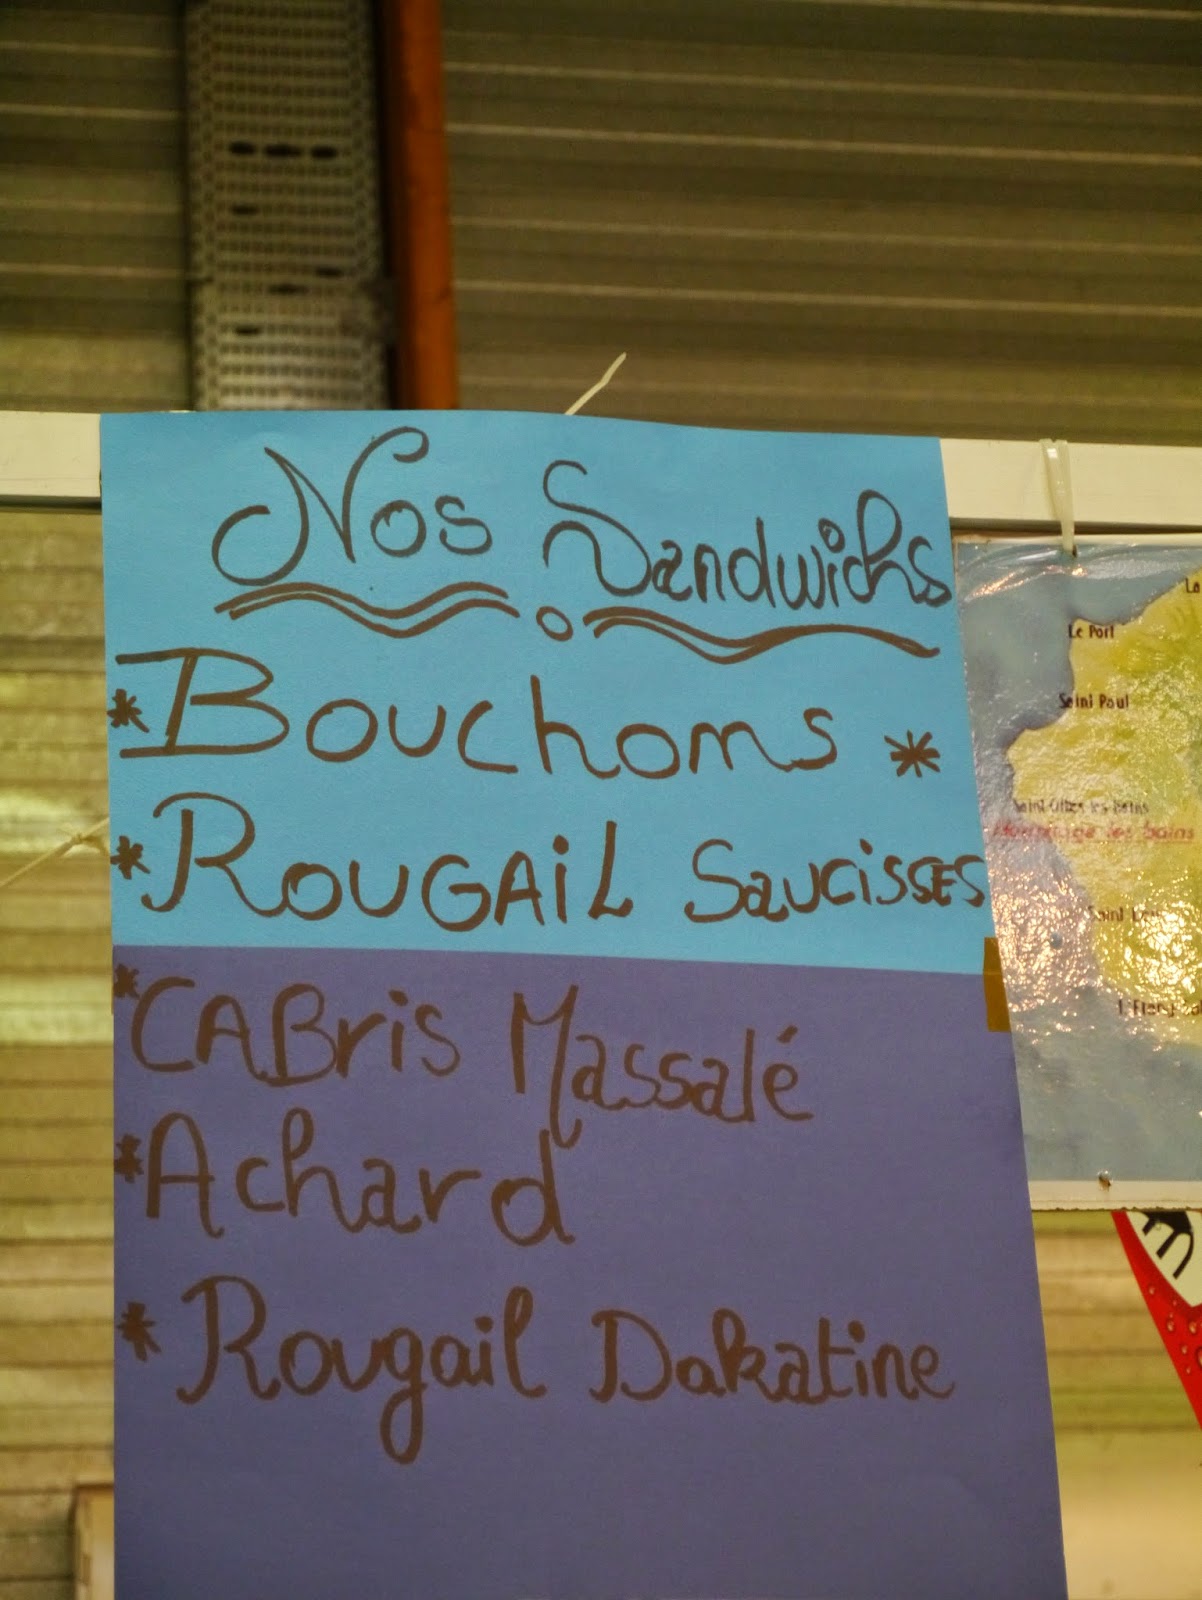 Nos Sandwichs
* Bouchons *
* ROUGAIL SAUCISSES
* CABris Massalé
* Achard
* Rougail Dakatine
Le Port
Saint Paul
Saint Gilles les bains
les bains
Saint